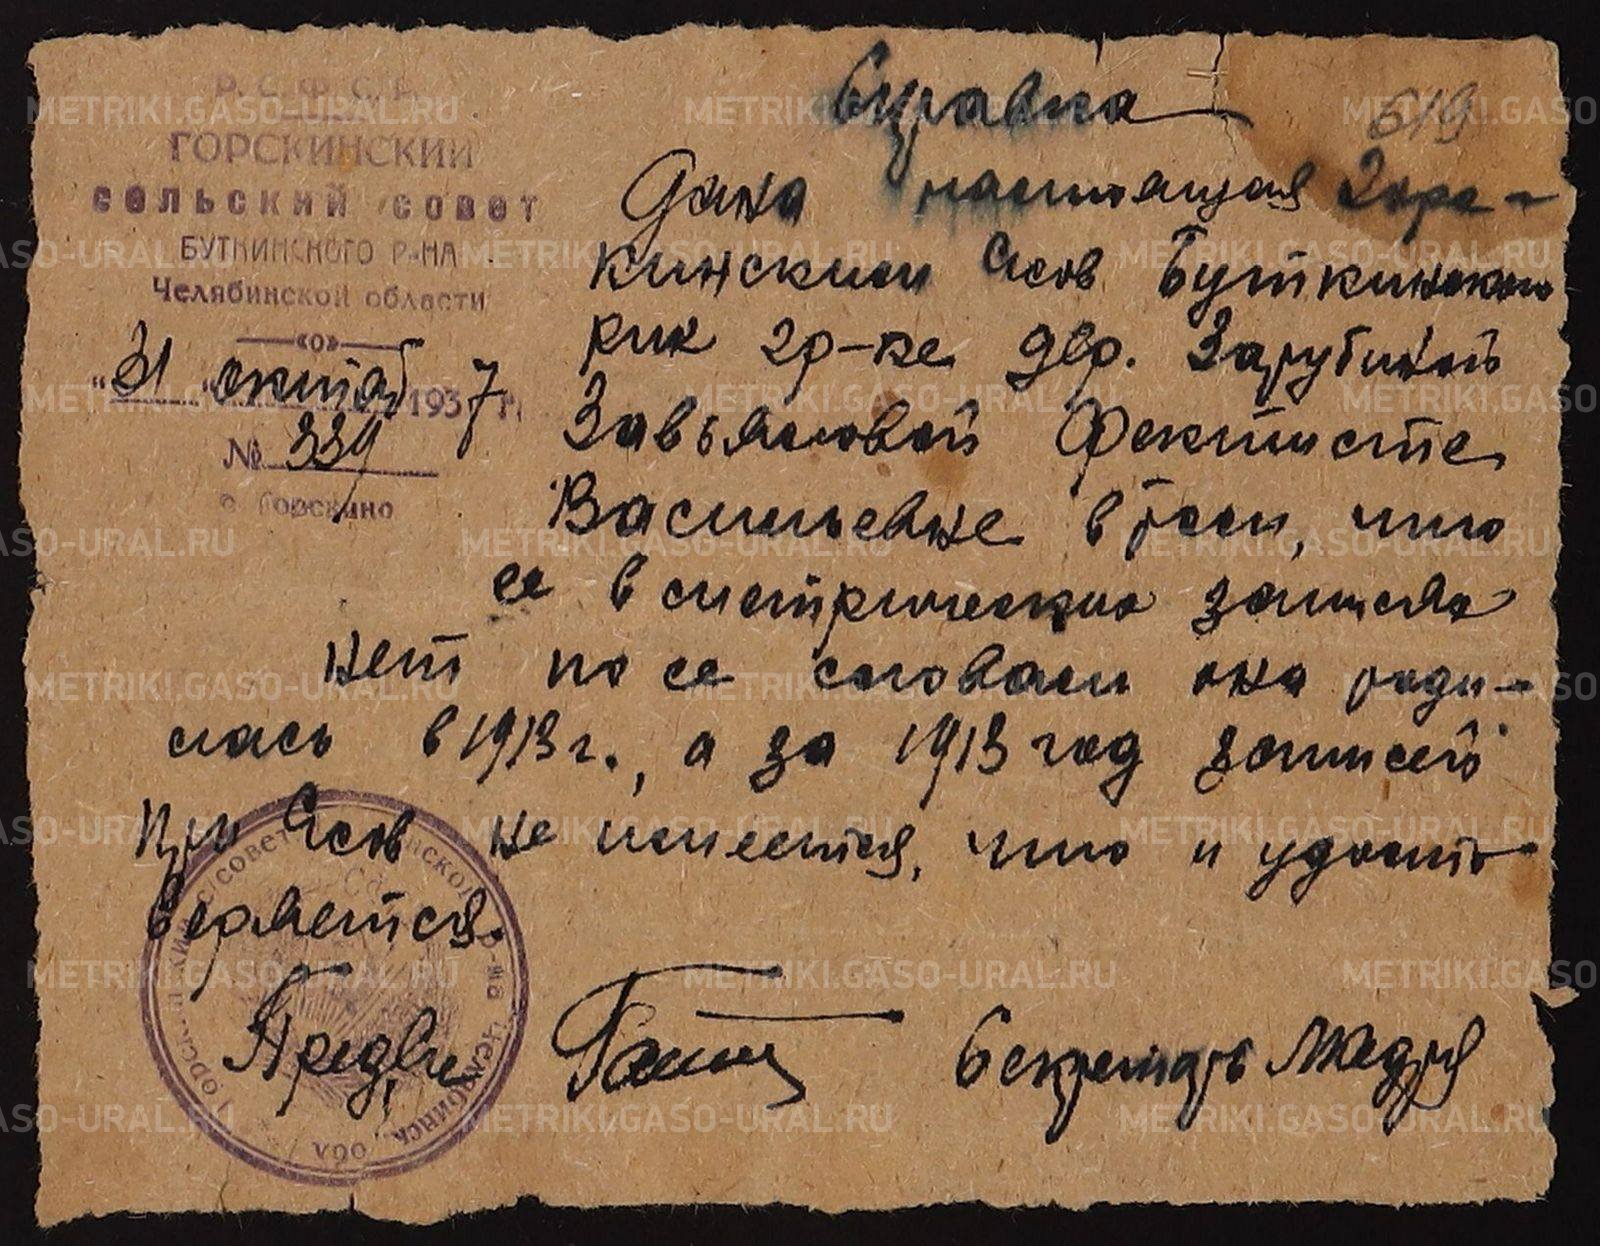 Р. С. Ф. С. Р.
ГОРСКИНСКИЙ
сельский совет
БУТКИНСКОГО Р-НА
Челябинской области
«о»
"31" октяб 1937 г.
№ 339
с Горскино
619
Справка
Дана настоящая Горс-
кинским с/сов Буткинского
рик гр-ке дер. Зарубиной
Завьяловой Фектисте
Васильевне в том, что
ее в метрических записях
нет по ее словам она роди-
лась в 1913 г., а за 1913 год записей
при с/сов не имеется, что и удосто-
веряется.
Предс/с Секретарь
METRIKI.GASO-URAL.RU